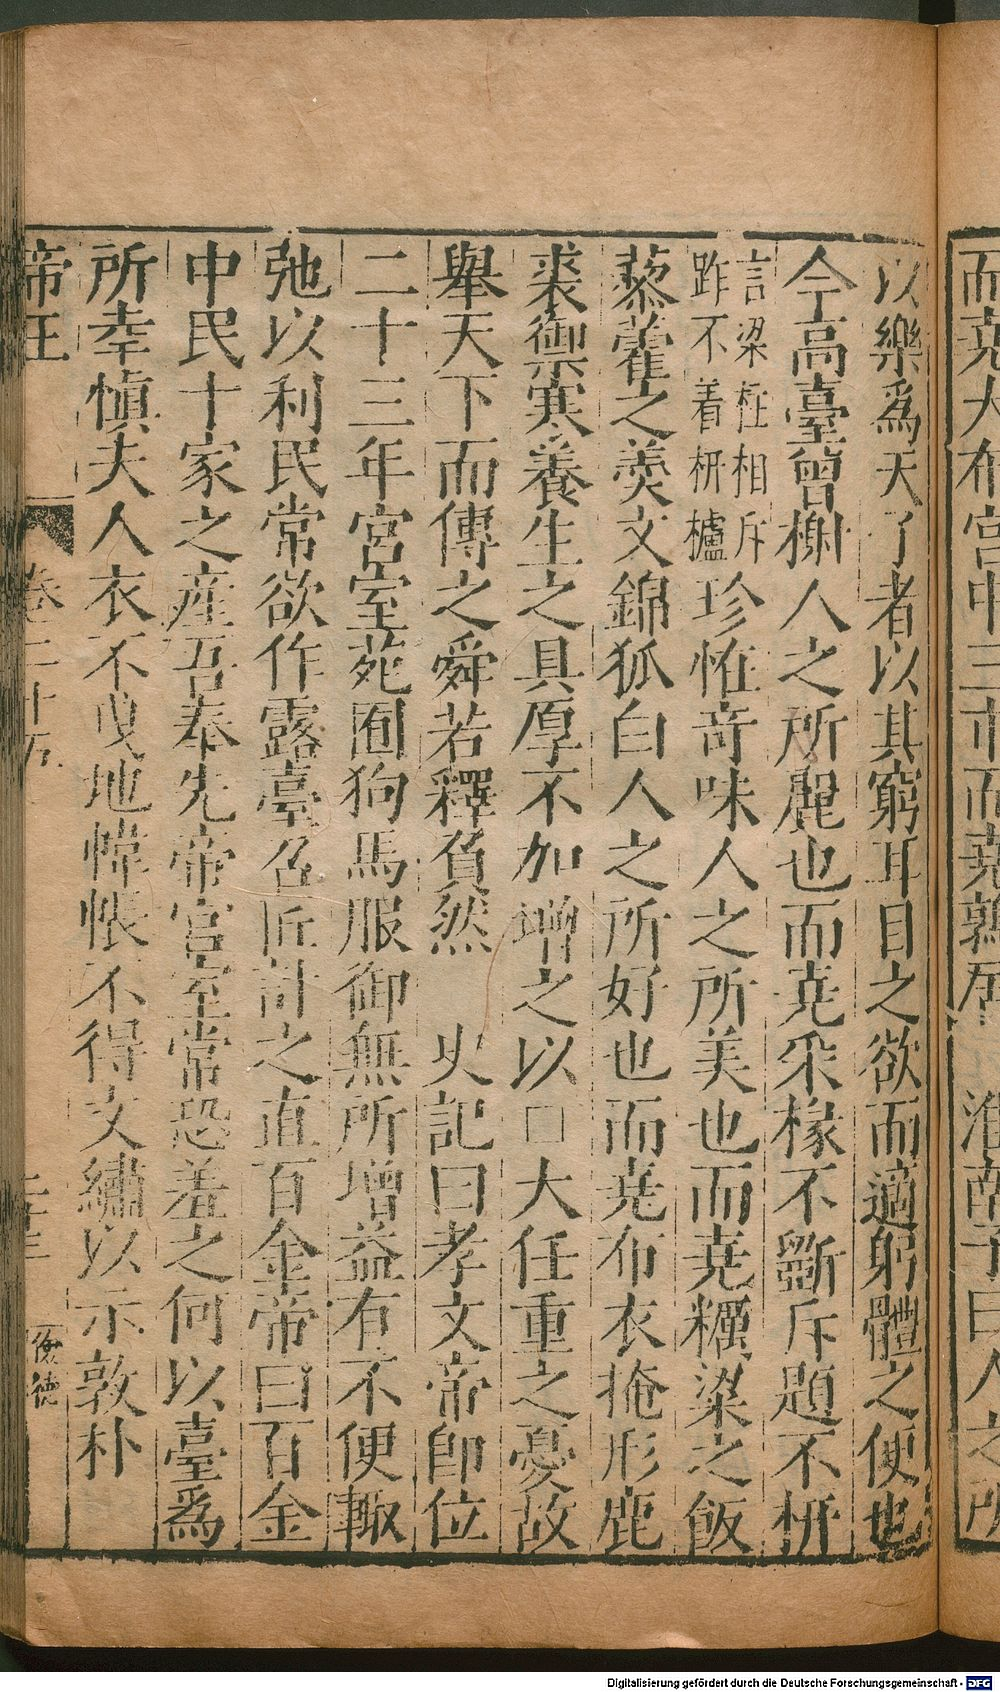 而堯大布宮中三市而堯鶉居　淮南子曰人之所
以樂爲天了者以其窮耳目之欲而適躬體之便也
今高臺曾榭人之所麗也而堯采椽不斵斥題不枅
言梁柱相斥
跓不着枅櫨
珍恠竒味人之所美也而堯糲粱之飯
藜藿之羮文錦狐白人之所好也而堯布衣掩形鹿
裘御寒養生之具厚不加增之以□大任重之憂故
舉天下而傳之舜若釋負然　史記曰孝文帝即位
二十三年宮室苑囿狗馬服御無所增益有不便輙
弛以利民常欲作露臺召匠計之直百金帝曰百金
中民十家之産吾奉先帝宮室常恐羞之何以臺爲
所幸愼夫人衣不曳地幃帳不得文繡以示敦朴
帝王　卷二十五　儉德
Digitalisierung gefördert durch die Deutsche Forschungsgemeinschaft - DFG